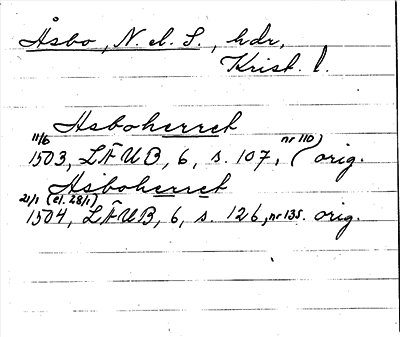 Åsbo, N. el. S., hdr,
Krist. l.
Asboherret
11/6 1503, LÄUB, 6, s. 107, (nr 110) orig.
Asboherret
21/1 (el. 28/1) 1504, LÄUB, 6, s. 126, nr 135. orig.